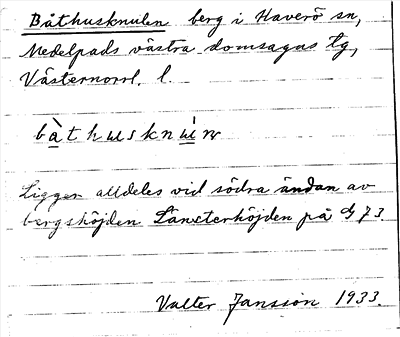 Båthusknulen berg i Haverö sn,
Medelpads västra domsagas tg,
Västernorrl. l.
bàthusknúln
Ligger alldeles vid södra ändan av
bergshöjden på G 73.
Valter Jansson 1933.